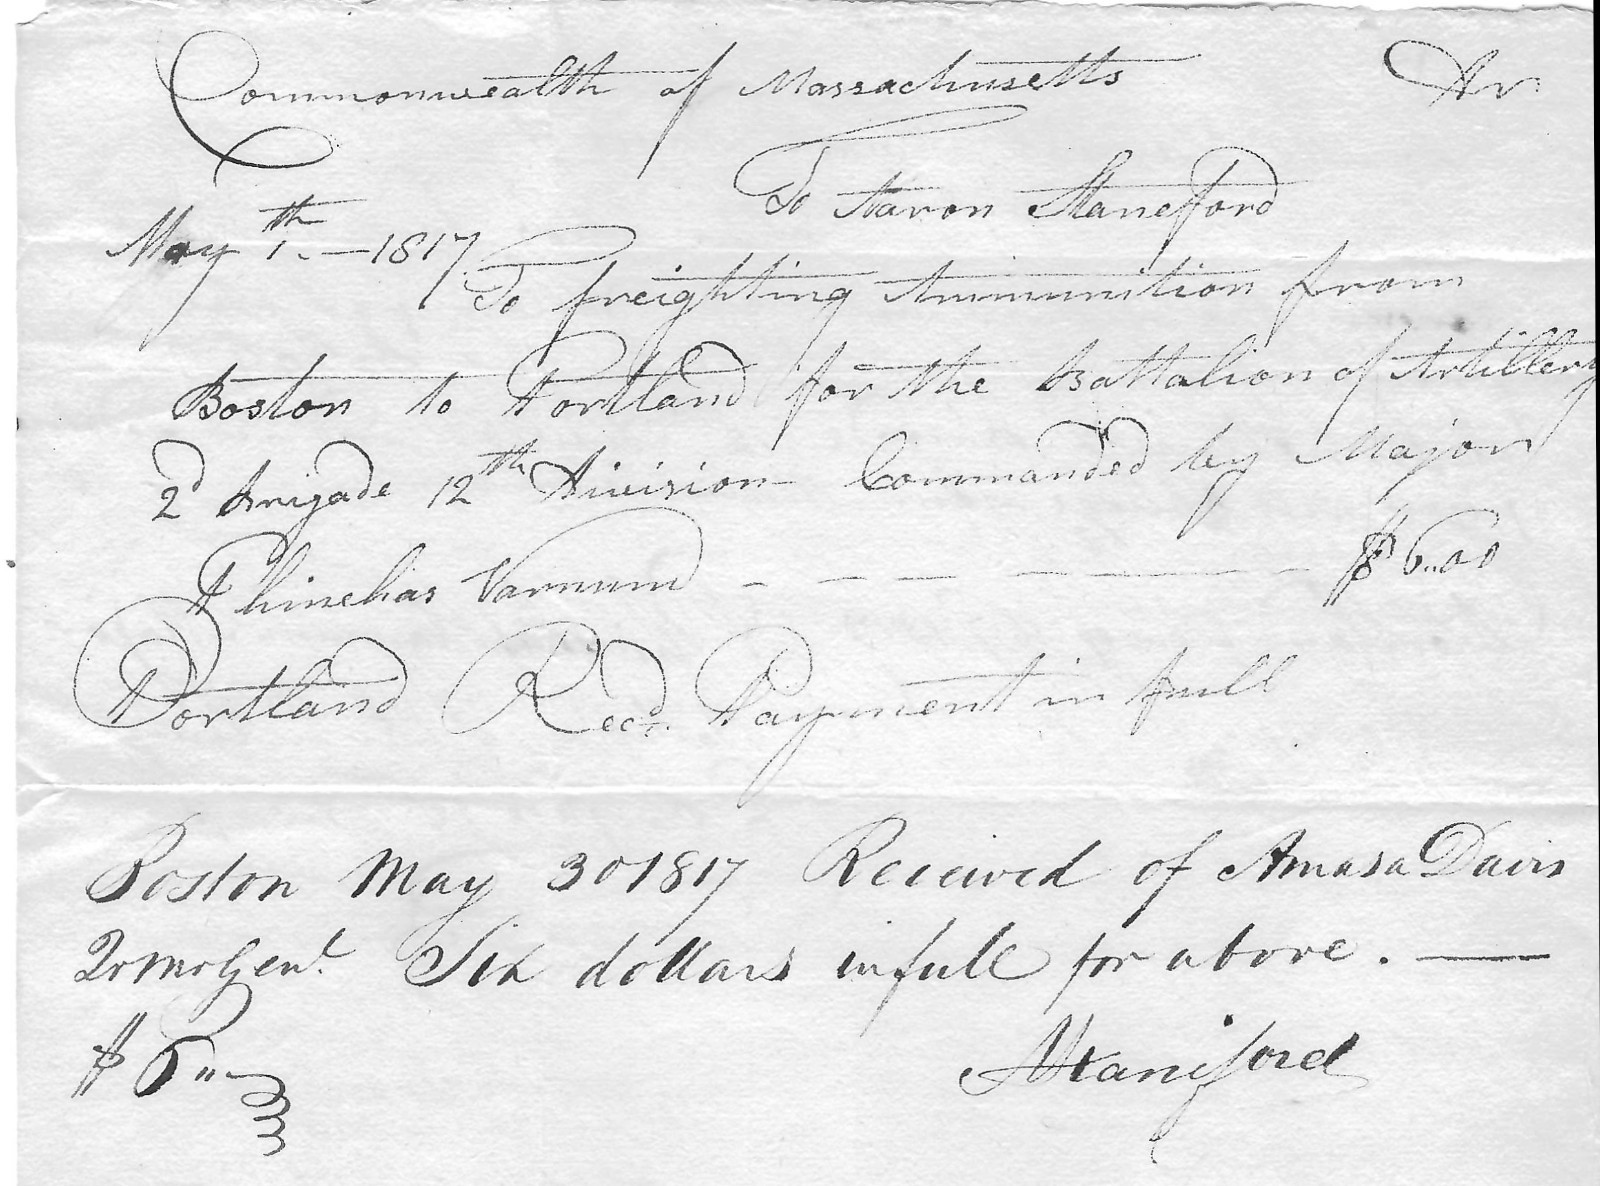 Commonwealth of Massachusetts Dr
To Aaron Staneford
May 1th. – 1817
To freighting Ammunition from
Boston to Portland for the Battalion of Artillery
2d Brigade 12th Division Commanded by Major
Phinehas Varnum - - - - - - $6..00
Portland Recd. Payment in full
Boston May 30 1817 Received of Amasa Davis
Qr Mr Genl. Six dollars in full for above. —
$6..-
A Staniford